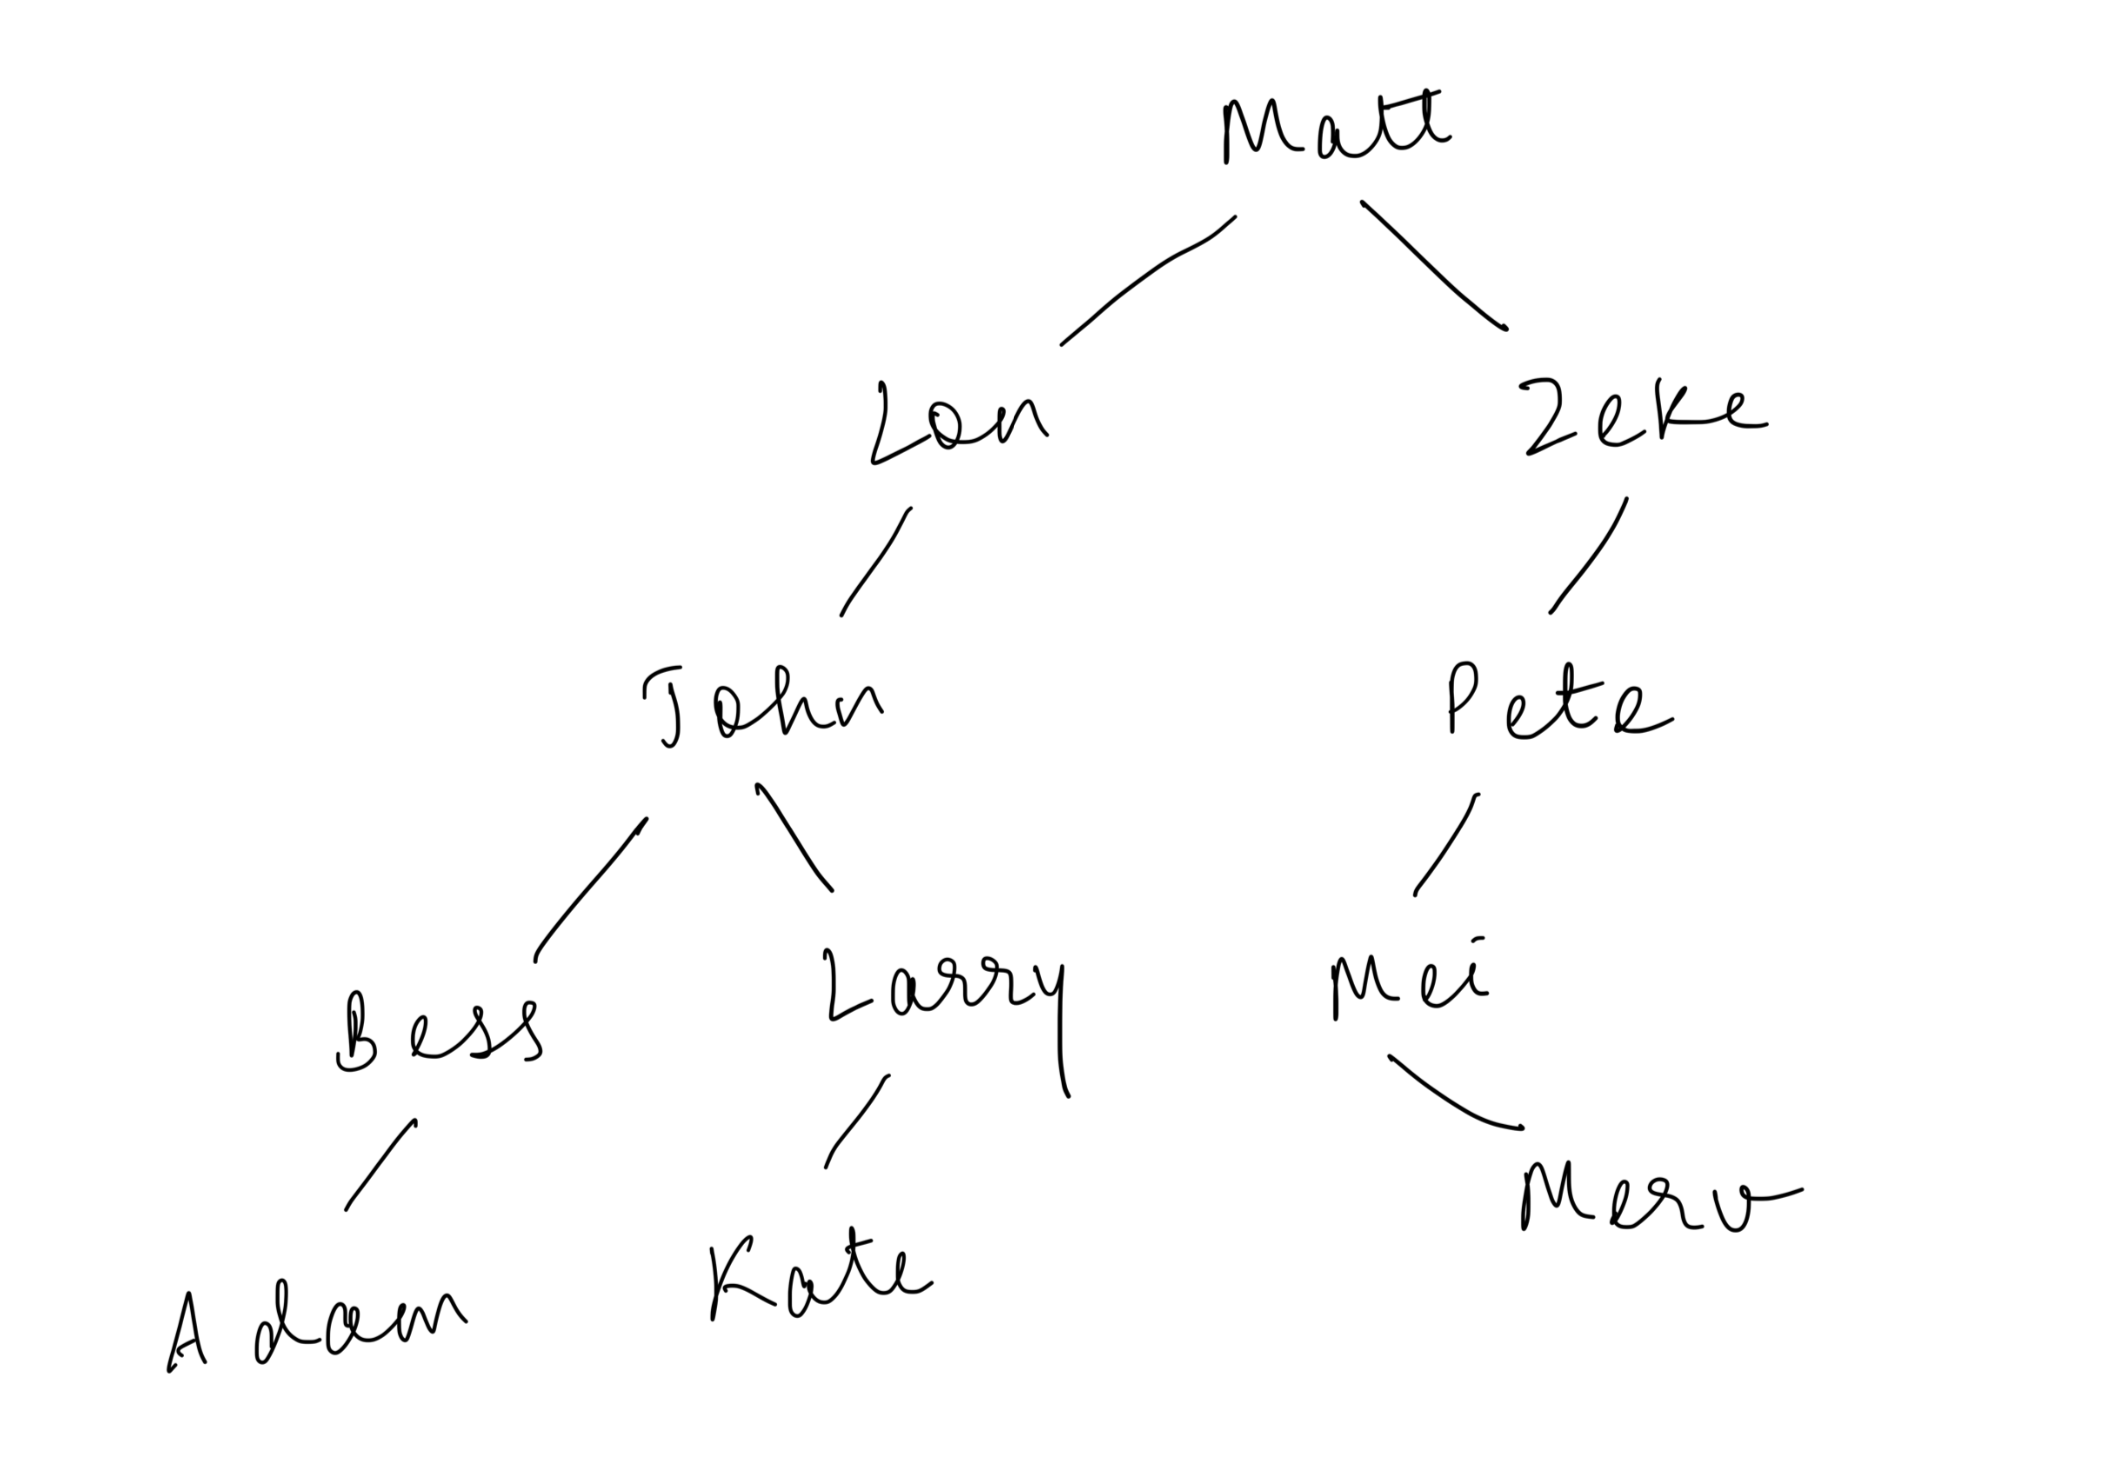 Matt
Lon Zeke
John Pete
Bess Larry Mei
Adam Kate Merv